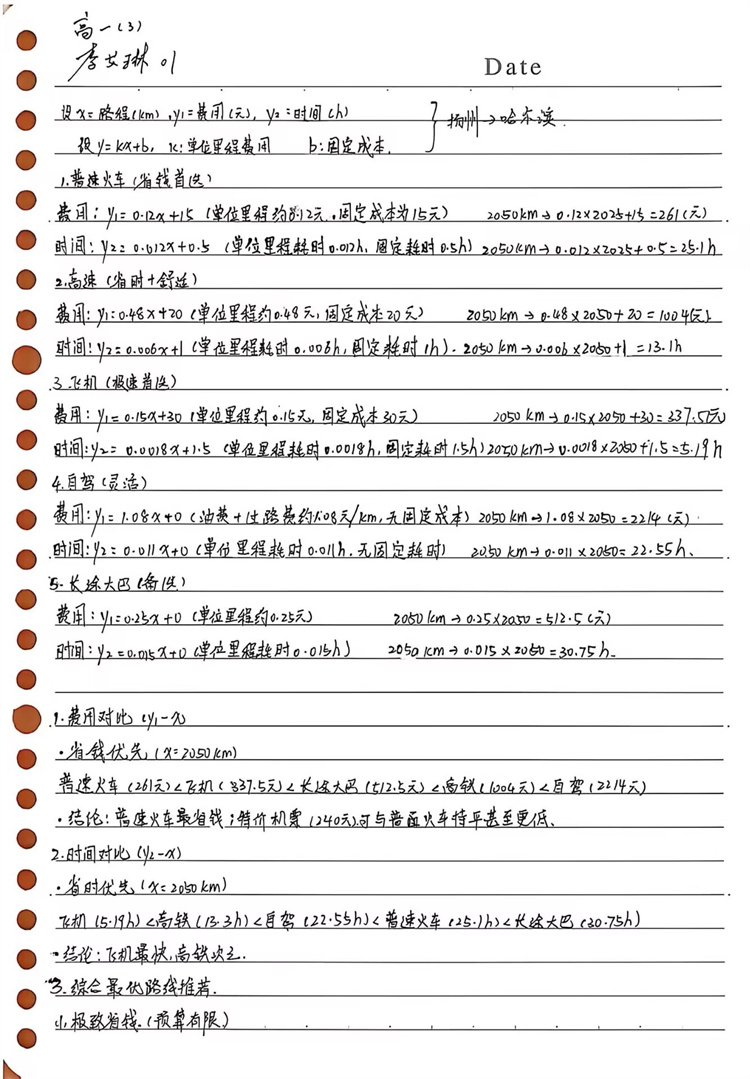 高一(3)
李艾琳 01
Date
设x=路程(km),y₁=费用(元), y₂=时间(h)
设y=kx+b, k:单位里程费用 b:固定成本.
} 扬州→哈尔滨.
1.普速火车(省钱首选)
费用: y₁=0.12x+15 (单位里程约0.12元,固定成本为15元) 2050km→0.12×2025+15=261(元)
时间: y₂=0.012x+0.5 (单位里程耗时0.012h,固定耗时0.5h) 2050km→0.012×2025+0.5=25.1h
2.高速(省时+舒适)
费用: y₁=0.48x+20 (单位里程约0.48元,固定成本20元) 2050km→0.48×2050+20=1004(元).
时间: y₂=0.006x+1 (单位里程耗时0.006h,固定耗时1h). 2050km→0.006×2050+1=13.1h
3.飞机(极速首选)
费用: y₁=0.15x+30 (单位里程约0.15元,固定成本30元) 2050km→0.15×2050+30=337.5元
时间: y₂=0.0018x+1.5 (单位里程耗时0.0018h,固定耗时1.5h) 2050km→0.0018×2050+1.5=5.19h
4.自驾(灵活)
费用: y₁=1.08x+0 (油费+过路费约1.08元/km,无固定成本) 2050km→1.08×2050=2214(元).
时间: y₂=0.011x+0 (单位里程耗时0.011h,无固定耗时) 2050km→0.011×2050=22.55h.
5.长途大巴(备选)
费用: y₁=0.25x+0 (单位里程约0.25元) 2050km→0.25×2050=512.5(元)
时间: y₂=0.015x+0 (单位里程耗时0.015h) 2050km→0.015×2050=30.75h.
1.费用对比(y₁-x)
·省钱优先(x=2050km)
普速火车(261元)<飞机(337.5元)<长途大巴(512.5元)<高铁(1004元)<自驾(2214元)
·结论:普速火车最省钱;特价机票(240元)可与普通火车持平甚至更低.
2.时间对比(y₂-x)
·省时优先(x=2050km)
飞机(5.19h)<高铁(13.3h)<自驾(22.55h)<普速火车(25.1h)<长途大巴(30.75h)
·结论:飞机最快,高铁次之.
3.综合最优路线推荐.
(1).极致省钱.(预算有限)